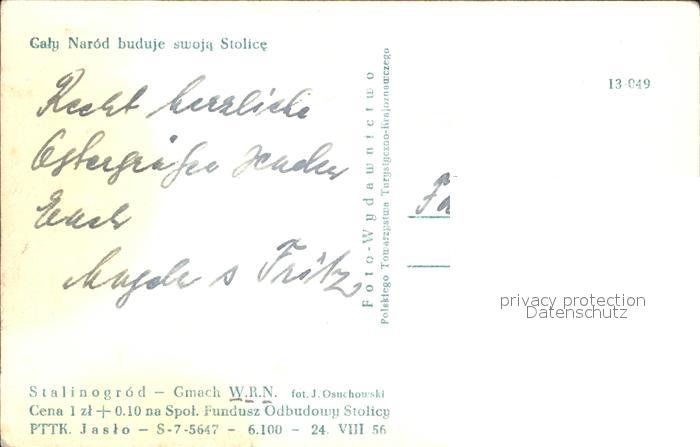 Cały Naród buduje swoją Stolicę
13-049
Recht herzliche
Ostergrüße senden
Euch
Magda u Fritz
Foto-Wydawnictwo
Polskiego Towarzystwa Turystyczno-Krajoznawczego
Fa
privacy protection
Datenschutz
Stalinogród — Gmach W.R.N. fot. J. Osuchowski
Cena 1 zł + 0.10 na Społ. Fundusz Odbudowy Stolicy
PTTK. Jasło — S-7-5647 — 6.100 — 24. VIII 56